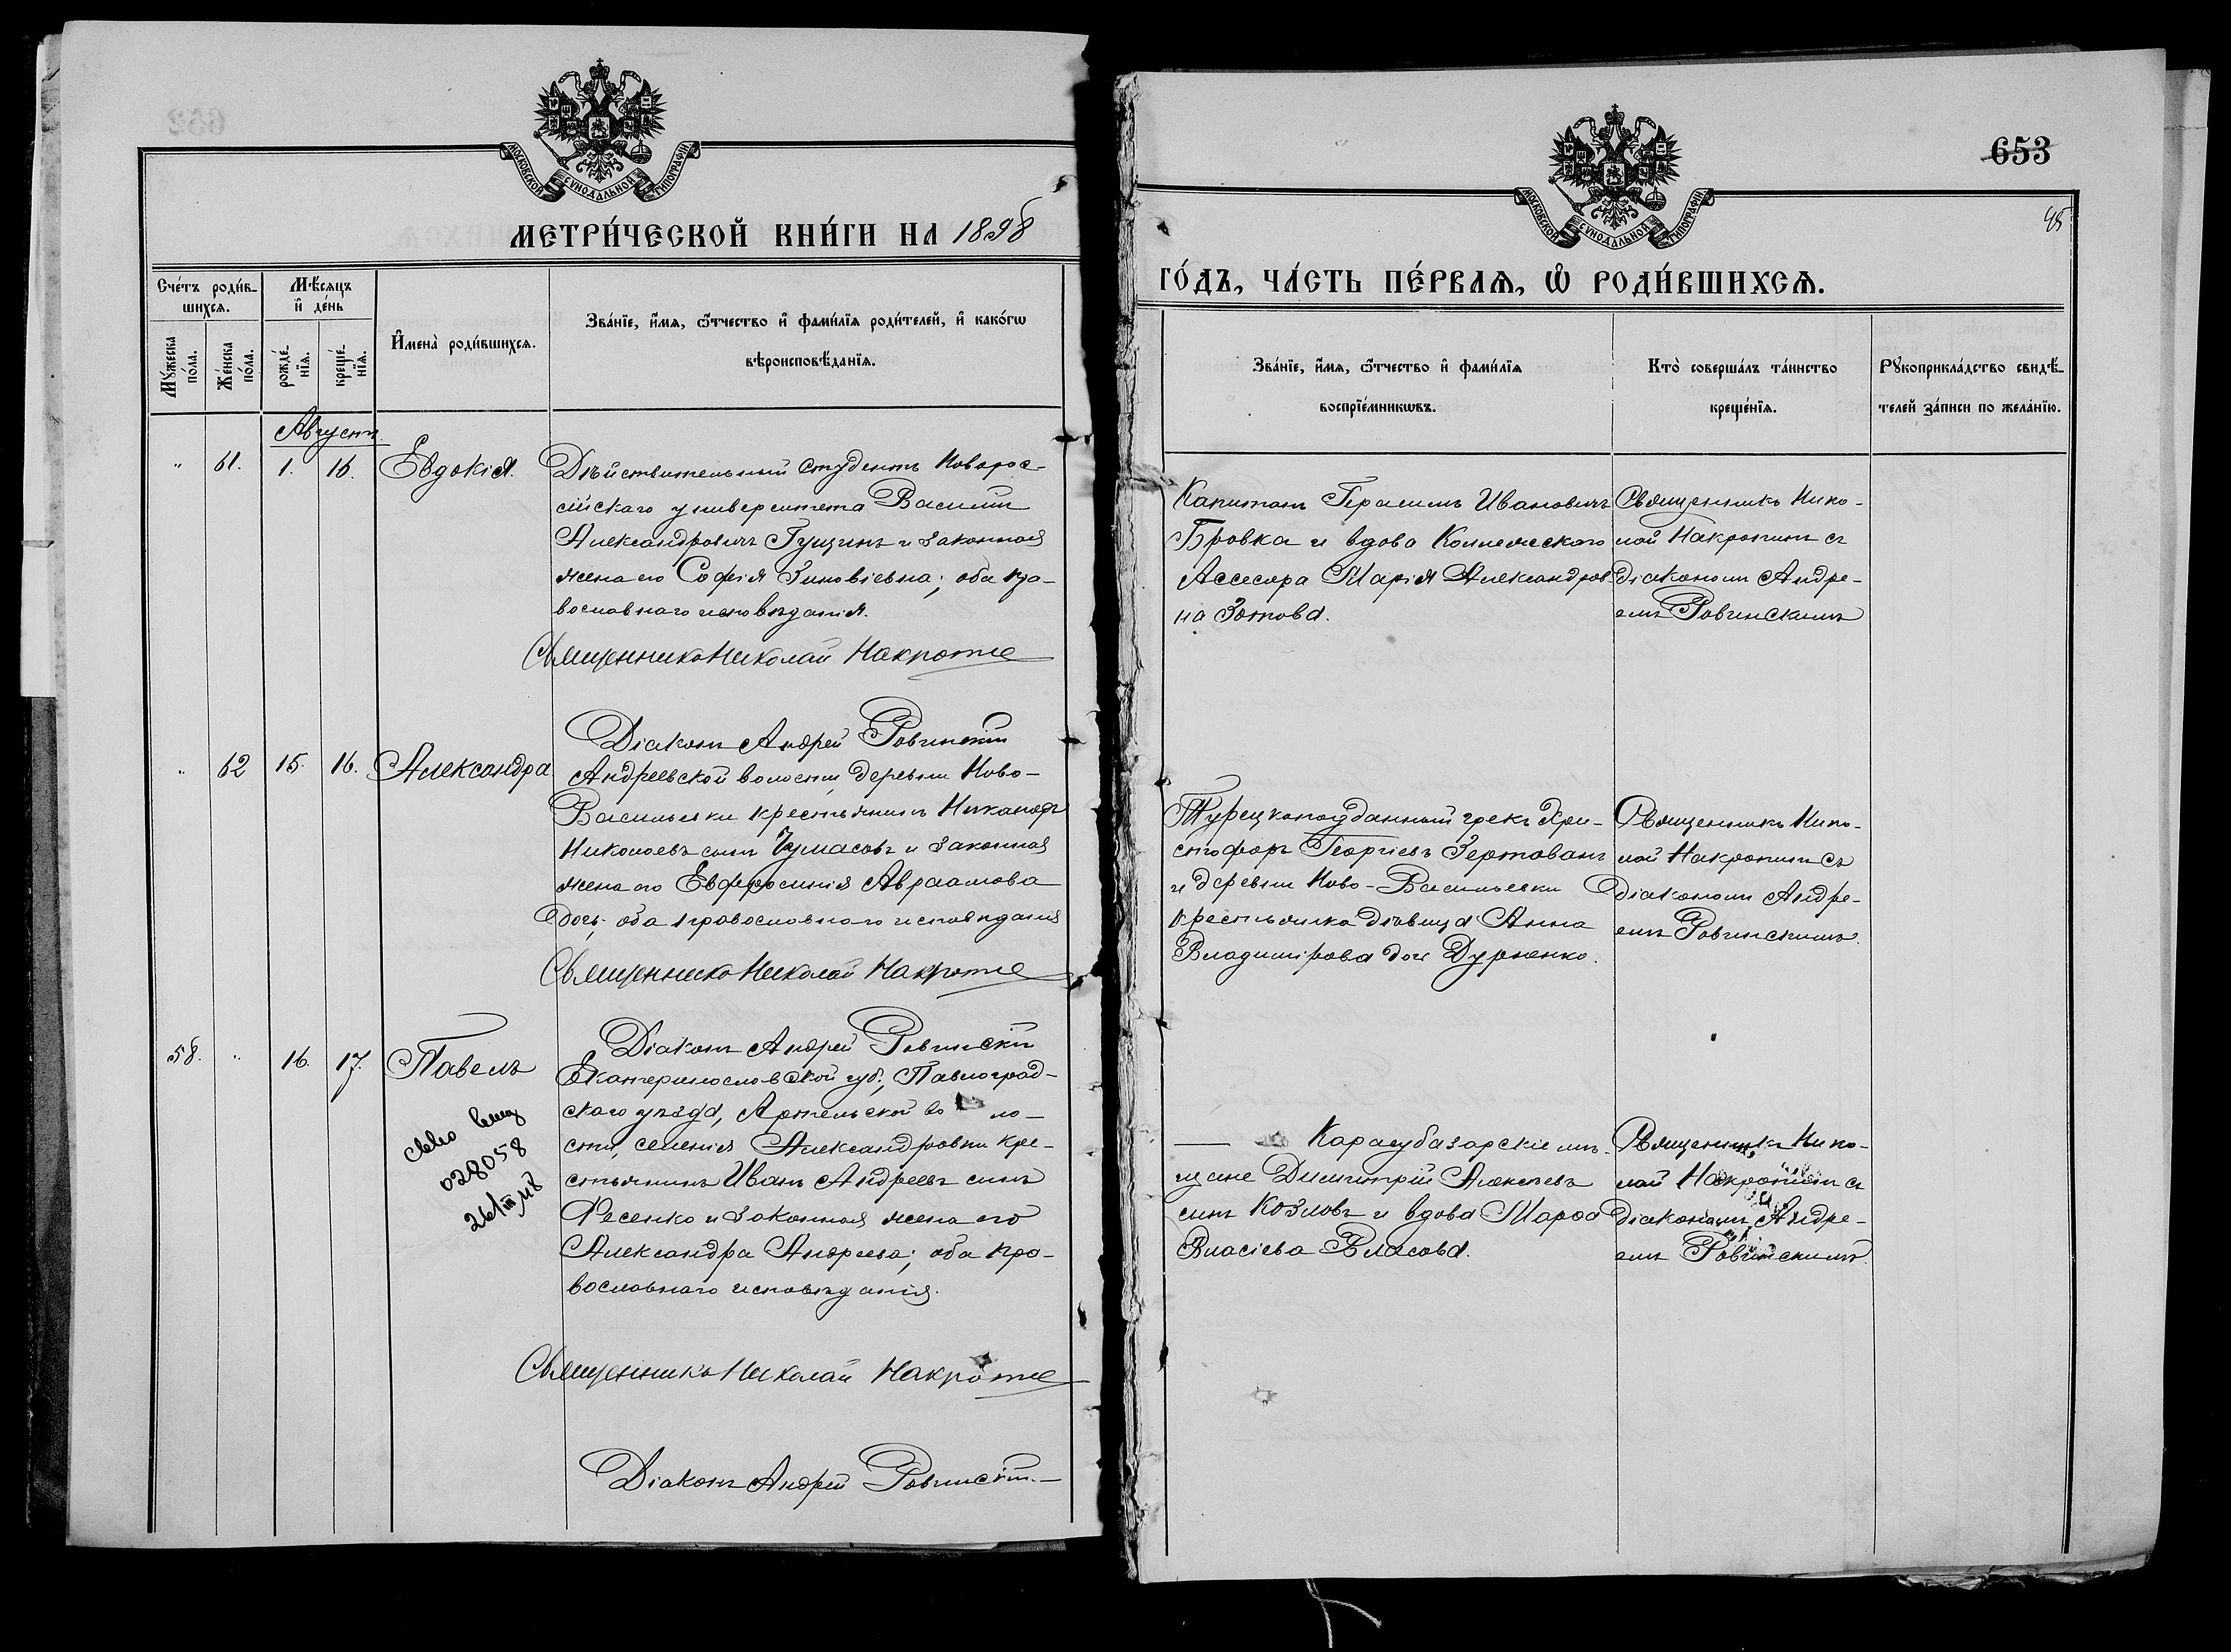 653
45
МОСКОВСКОЙ СѴНОДАЛЬНОЙ ТИПОГРАФІИ
МЕТРИ́ЧЕСКОЙ КНИ́ГИ НА 1898
Сче́тъ роди́в-
шихся.
Мѣ́сяцъ
и҆ де́нь
Мꙋ́жеска
по́ла.
Же́нска
по́ла.
рожде́-
нїѧ.
креще́-
нїѧ.
И҆мена̀ роди́вшихсѧ.
Зва́нїе, и҆́мѧ, ѻ҆́тчество и҆ фами́лїѧ роди́телей, и҆ како́гѡ
вѣроисповѣ́данїѧ.
Августъ
" 61. 1. 16. Евдокія.
Дѣйствительный студентъ Новорос-
сійскаго университета Василій
Александровичъ Гущинъ и законная
жена его Софія Зиновіевна; оба пра-
вославнаго исповѣданія.
Священникъ Николай Накропинъ
Діаконъ Андрей Ровинскій
" 62 15. 16. Александра
Андреевской волости, деревни Ново-
Васильевки крестьянинъ Никаноръ
Николаевъ сынъ Чумасовъ и законная
жена его Евфросинія Авраамова
дочь; оба православнаго исповѣданія
Священникъ Николай Накропинъ
Діаконъ Андрей Ровинскій
58. " 16. 17. Павелъ
028058
Екатеринославской губ., Павлоград-
скаго уѣзда, Артельской во ло-
сти, селенія Александровки кре-
стьянинъ Иванъ Андреевъ сынъ
Фесенко и законная жена его
Александра Андреева; оба пра-
вославнаго исповѣданія.
Священникъ Николай Накропинъ
Діаконъ Андрей Ровинскій.
МОСКОВСКОЙ СѴНОДАЛЬНОЙ ТИПОГРАФІИ
ГО́ДЪ, ЧА́СТЬ ПЕ́РВАѦ, Ѡ҆ РОДИ́ВШИХСѦ.
Зва́нїе, и҆́мѧ, ѻ҆́тчество и҆ фами́лїѧ
воспрїе́мникѡвъ.
Кто̀ соверша́лъ та́инство
креще́нїѧ.
Рꙋкоприкла́дство свидѣ́-
телей за́писи по жела́нїю.
Капитанъ Герасимъ Ивановичъ
Бровка и вдова Коллежскаго
Ассесора Марія Александров-
на Зотова.
Священникъ Нико-
лай Накропинъ съ
діакономъ Андре-
емъ Ровинскимъ
Турецкоподданный грекъ Хри-
стофоръ Георгіевъ Зертованъ
и деревни Ново-Васильевки
крестьянка дѣвица Анна
Владимірова дочь Дурненко.
Священникъ Нико-
лай Накропинъ съ
діакономъ Андре-
емъ Ровинскимъ.
Карасубазарскіе мѣ-
щане Димитрій Алексѣевъ
сынъ Козловъ и вдова Марѳа
Власіева Власова.
Священникъ Нико-
лай Накропинъ съ
діакономъ Андре-
емъ Ровинскимъ.